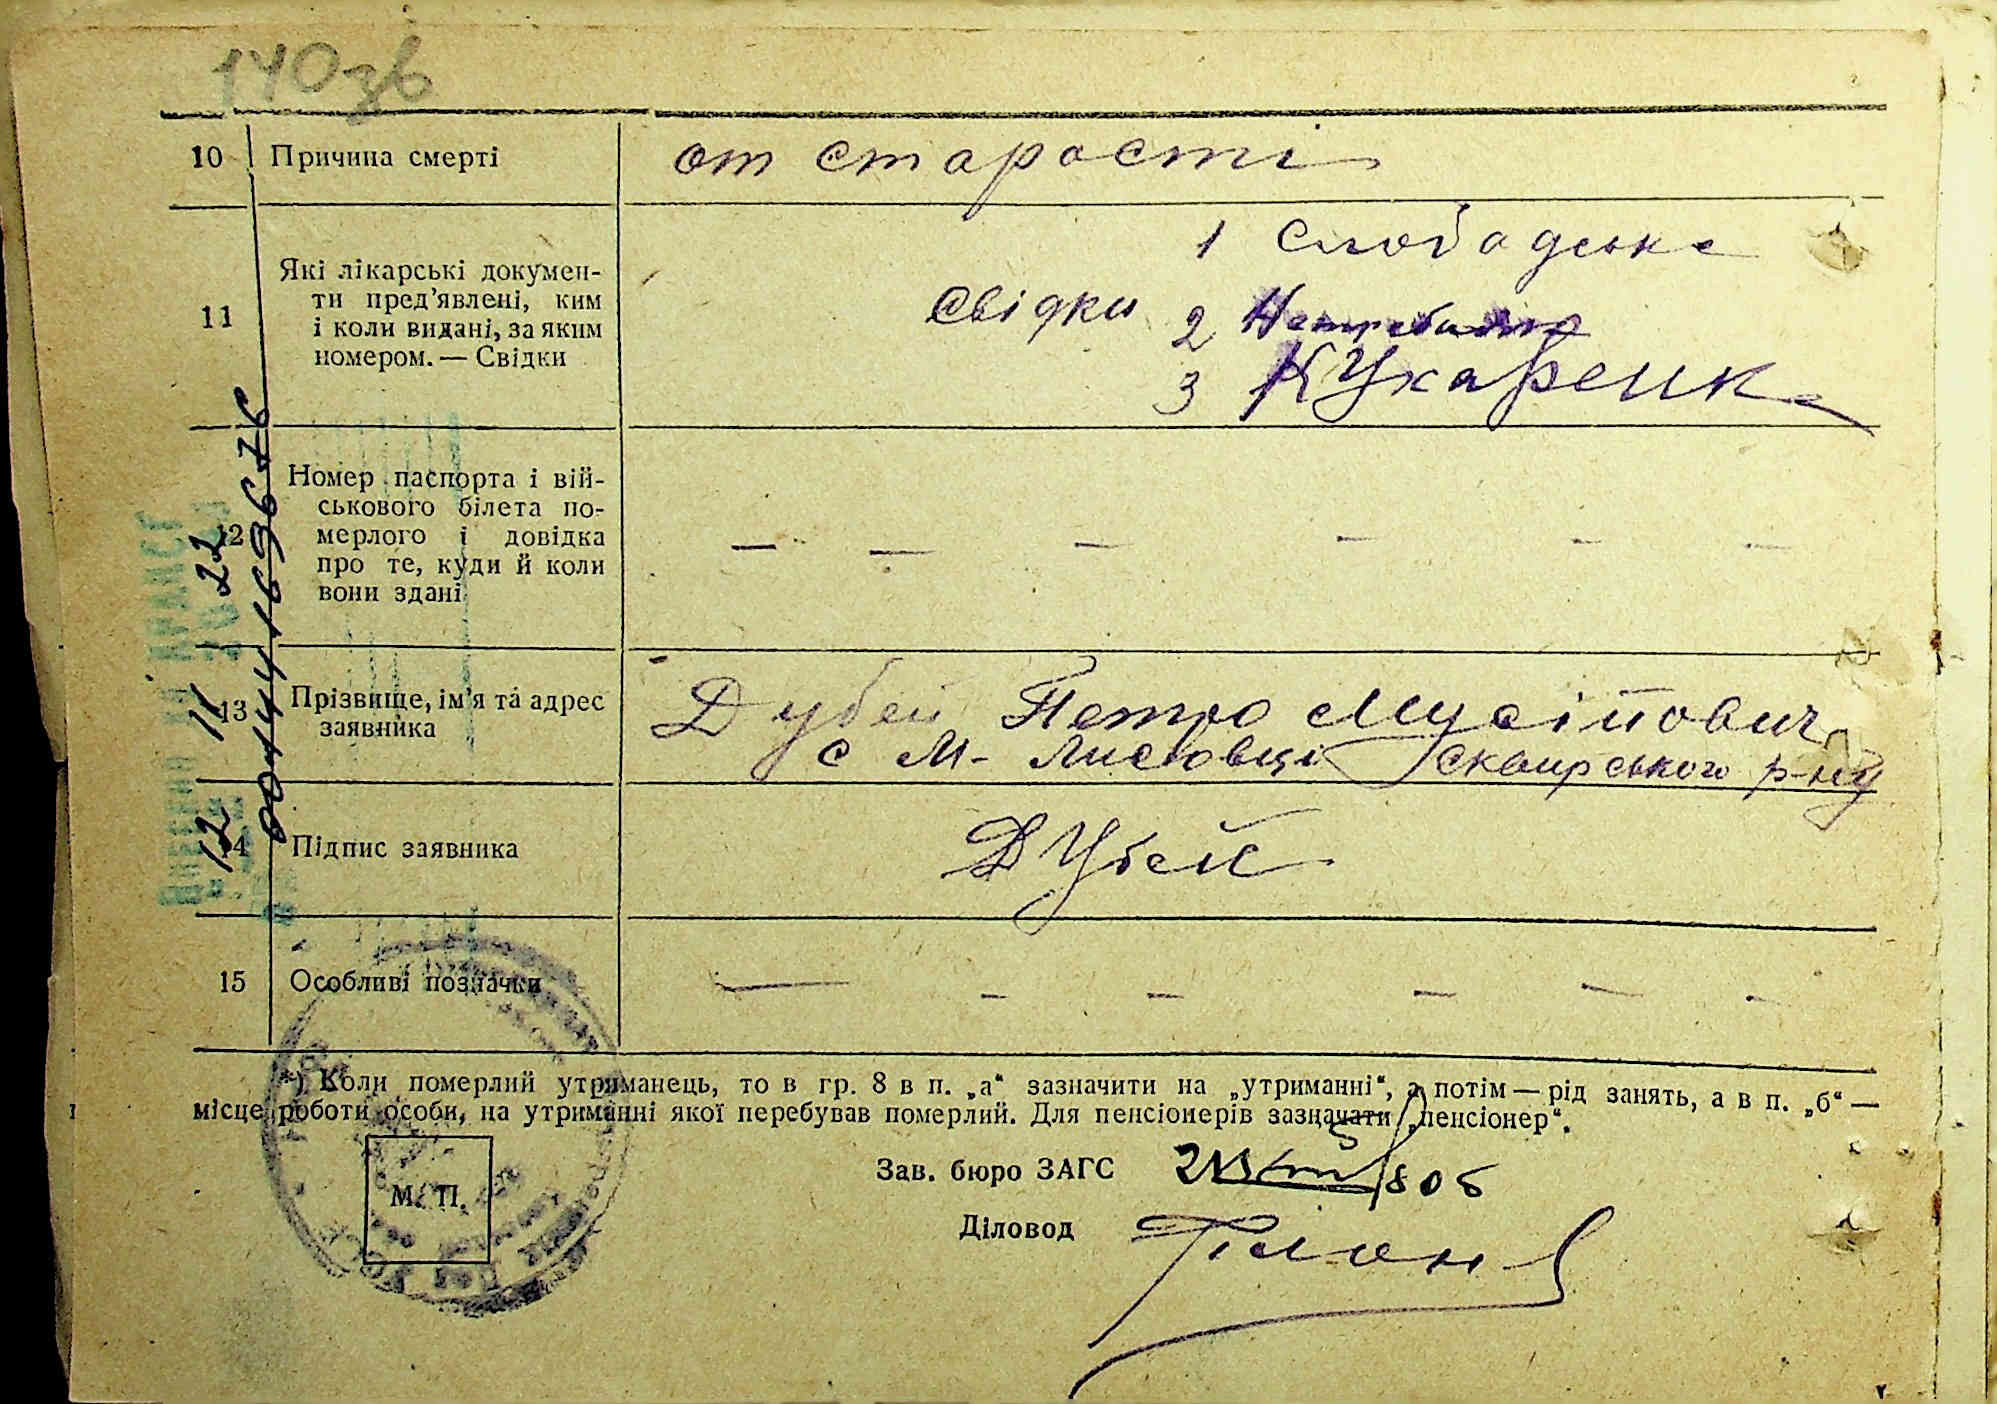 140 зв
10 Причина смерті от старості
11 Які лікарські докумен-
ти пред’явлені, ким
і коли видані, за яким
номером. — Свідки
Свідки
1 Слободяське
2
3 Кухаренк
12 Номер паспорта і вій-
ськового білета по-
мерлого і довідка
про те, куди й коли
вони здані
— — — — — —
13 Прізвище, ім’я та адрес
заявника
Дубей Петро Мусійович
с М-Лисовці Сквирського р-ну
14 Підпис заявника Дубей
15 Особливі позначки — — — — — —
12 11 22
00144163676
*) Коли померлий утриманець, то в гр. 8 в п. „а“ зазначити на „утриманні“, а потім — рід занять, а в п. „б“ —
місце роботи особи, на утриманні якої перебував померлий. Для пенсіонерів зазначати „пенсіонер“.
М. П.
Зав. бюро ЗАГС
Діловод